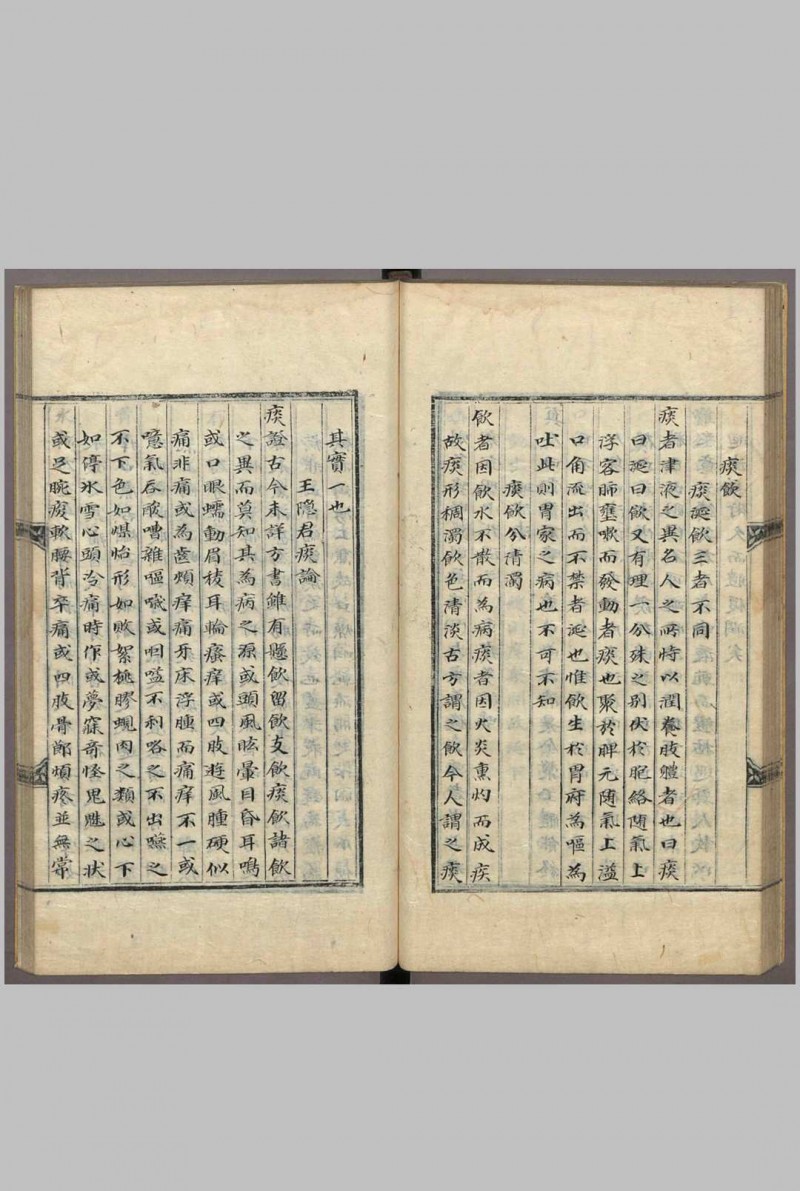 痰飲
痰涎飲三者不同
痰者津液之異名人之所恃以潤養肢軆者也曰痰
曰涎曰飲又有理一分殊之別伏於胞絡随氣上
浮客肺壅嗽而發動者痰也聚於脾元随氣上溢
口角流出而不禁者涎也惟飲生於胃府為嘔為
吐此則胃家之病也不可不知
痰飲分清濁
飲者因飲水不散而為病痰者因火炎熏灼而成疾
故痰形稠濁飲色清淡古方謂之飲今人謂之痰
其實一也
王隐君痰論
痰證古今未詳方書雖有懸飲留飲支飲痰飲諸飲
之異而莫知其為病之源或頭風眩暈目昏耳鳴
或口眼蠕動眉棱耳輪癢痒或四肢遊風腫硬似
痛非痛或為齒頰痒痛牙床浮腫而痛痒不一或
噫氣吞酸嘈雜嘔噦或咽嗌不利咯之不出嚥之
不下色如煤炲形如敗絮桃膠蜆肉之類或心下
如停氷雪心頭冷痛時作或夢寐奇怪鬼魅之状
或足腕痠軟腰背卒痛或四肢骨節煩疼並無常